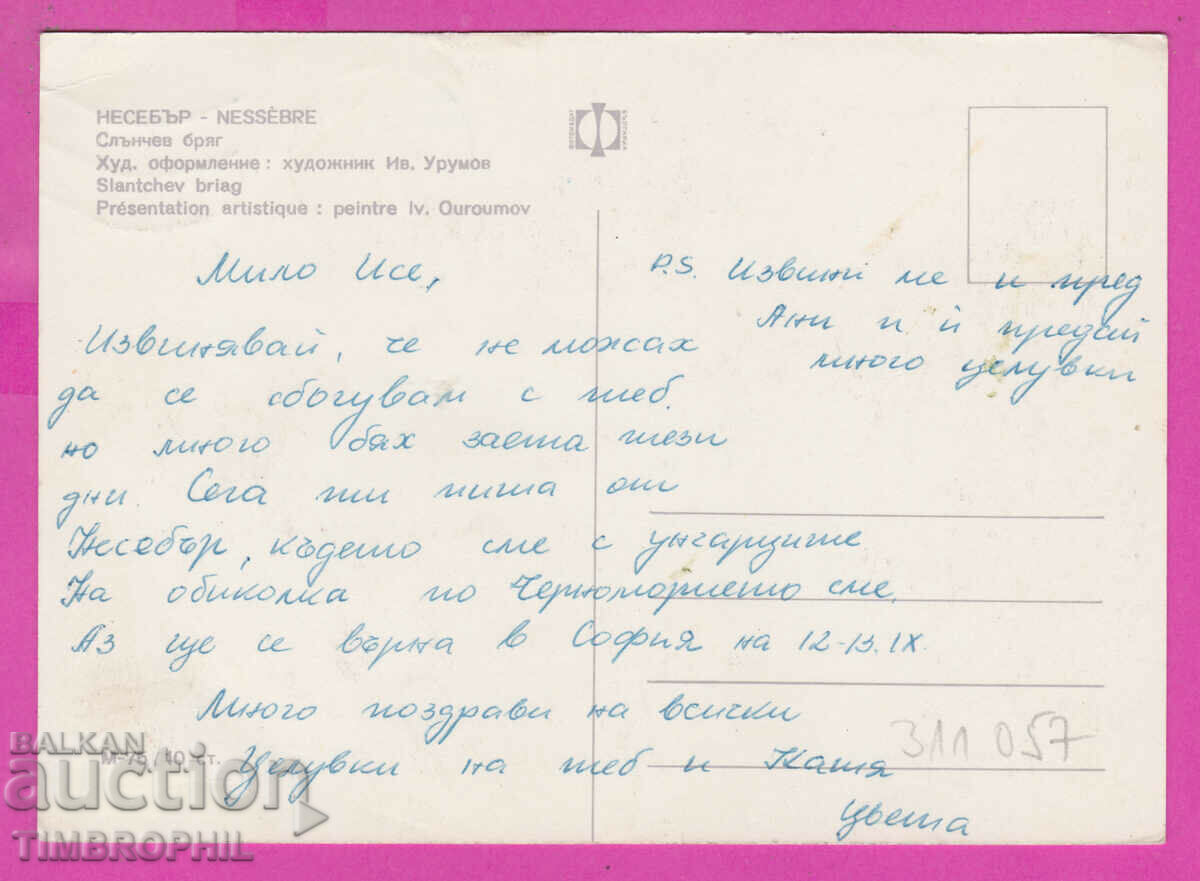 НЕСЕБЪР - NESSÈBRE
Слънчев бряг
Худ. оформление: художник Ив. Урумов
Slantchev briag
Présentation artistique : peintre Iv. Ouroumov
Мило Исе,
Извинявай, че не можах
да се сбогувам с теб.
но много бях заета тези
дни. Сега ти пиша от
Несебър, където сме с унгарците
На обиколка по Черноморието сме.
Аз ще се върна в София на 12-13.IX.
Много поздрави на всички
Целувки на теб и Катя
Цвета
P.S. Извини ме и пред
Ани и ѝ предай
много целувки
М-75/10 ст.
311 057
BALKAN
auction
TIMBROPHIL